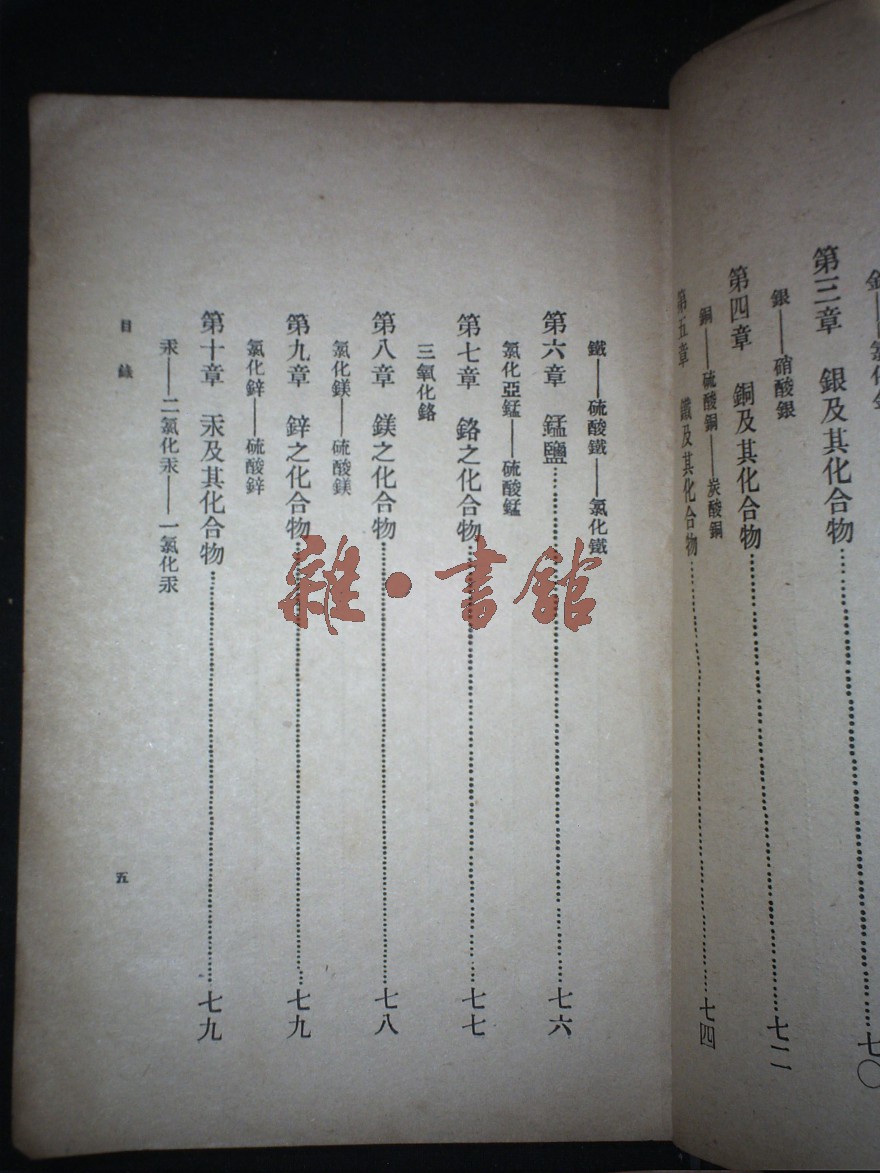 第三章 銀及其化合物……七〇
銀——硝酸銀
第四章 銅及其化合物……七二
銅——硫酸銅——炭酸銅
第五章 鐵及其化合物……七四
鐵——硫酸鐵——氯化鐵
第六章 錳鹽……七六
氯化亞錳——硫酸錳
第七章 鉻之化合物……七七
三氧化鉻
第八章 鎂之化合物……七八
氯化鎂——硫酸鎂
第九章 鋅之化合物……七九
氯化鋅——硫酸鋅
第十章 汞及其化合物……七九
汞——二氯化汞——一氯化汞
目錄
五
雜·書館